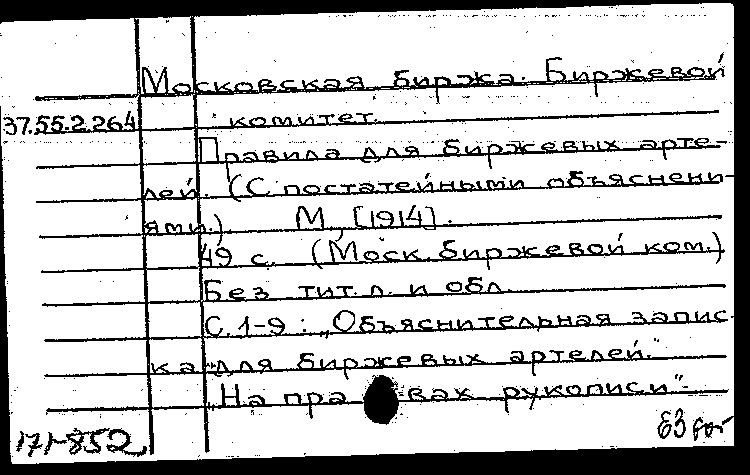 Московская биржа. Биржевой
37.55.2.264 комитет.
Правила для биржевых арте-
лей. (С постатейными объяснени-
ями.). М., [1914].
49 с. (Моск. биржевой ком.)
Без тит. л. и обл.
С. 1-9: „Объяснительная запис-
ка для биржевых артелей."
„На правах рукописи".
171-852